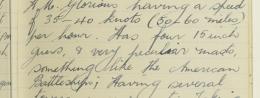 H.M. Glorious having a speed
of 35-40 knots (50+60 miles)
per hour. Has four 15 inch
guns, & very peculiar made,
something like the American
Battleships; Having several